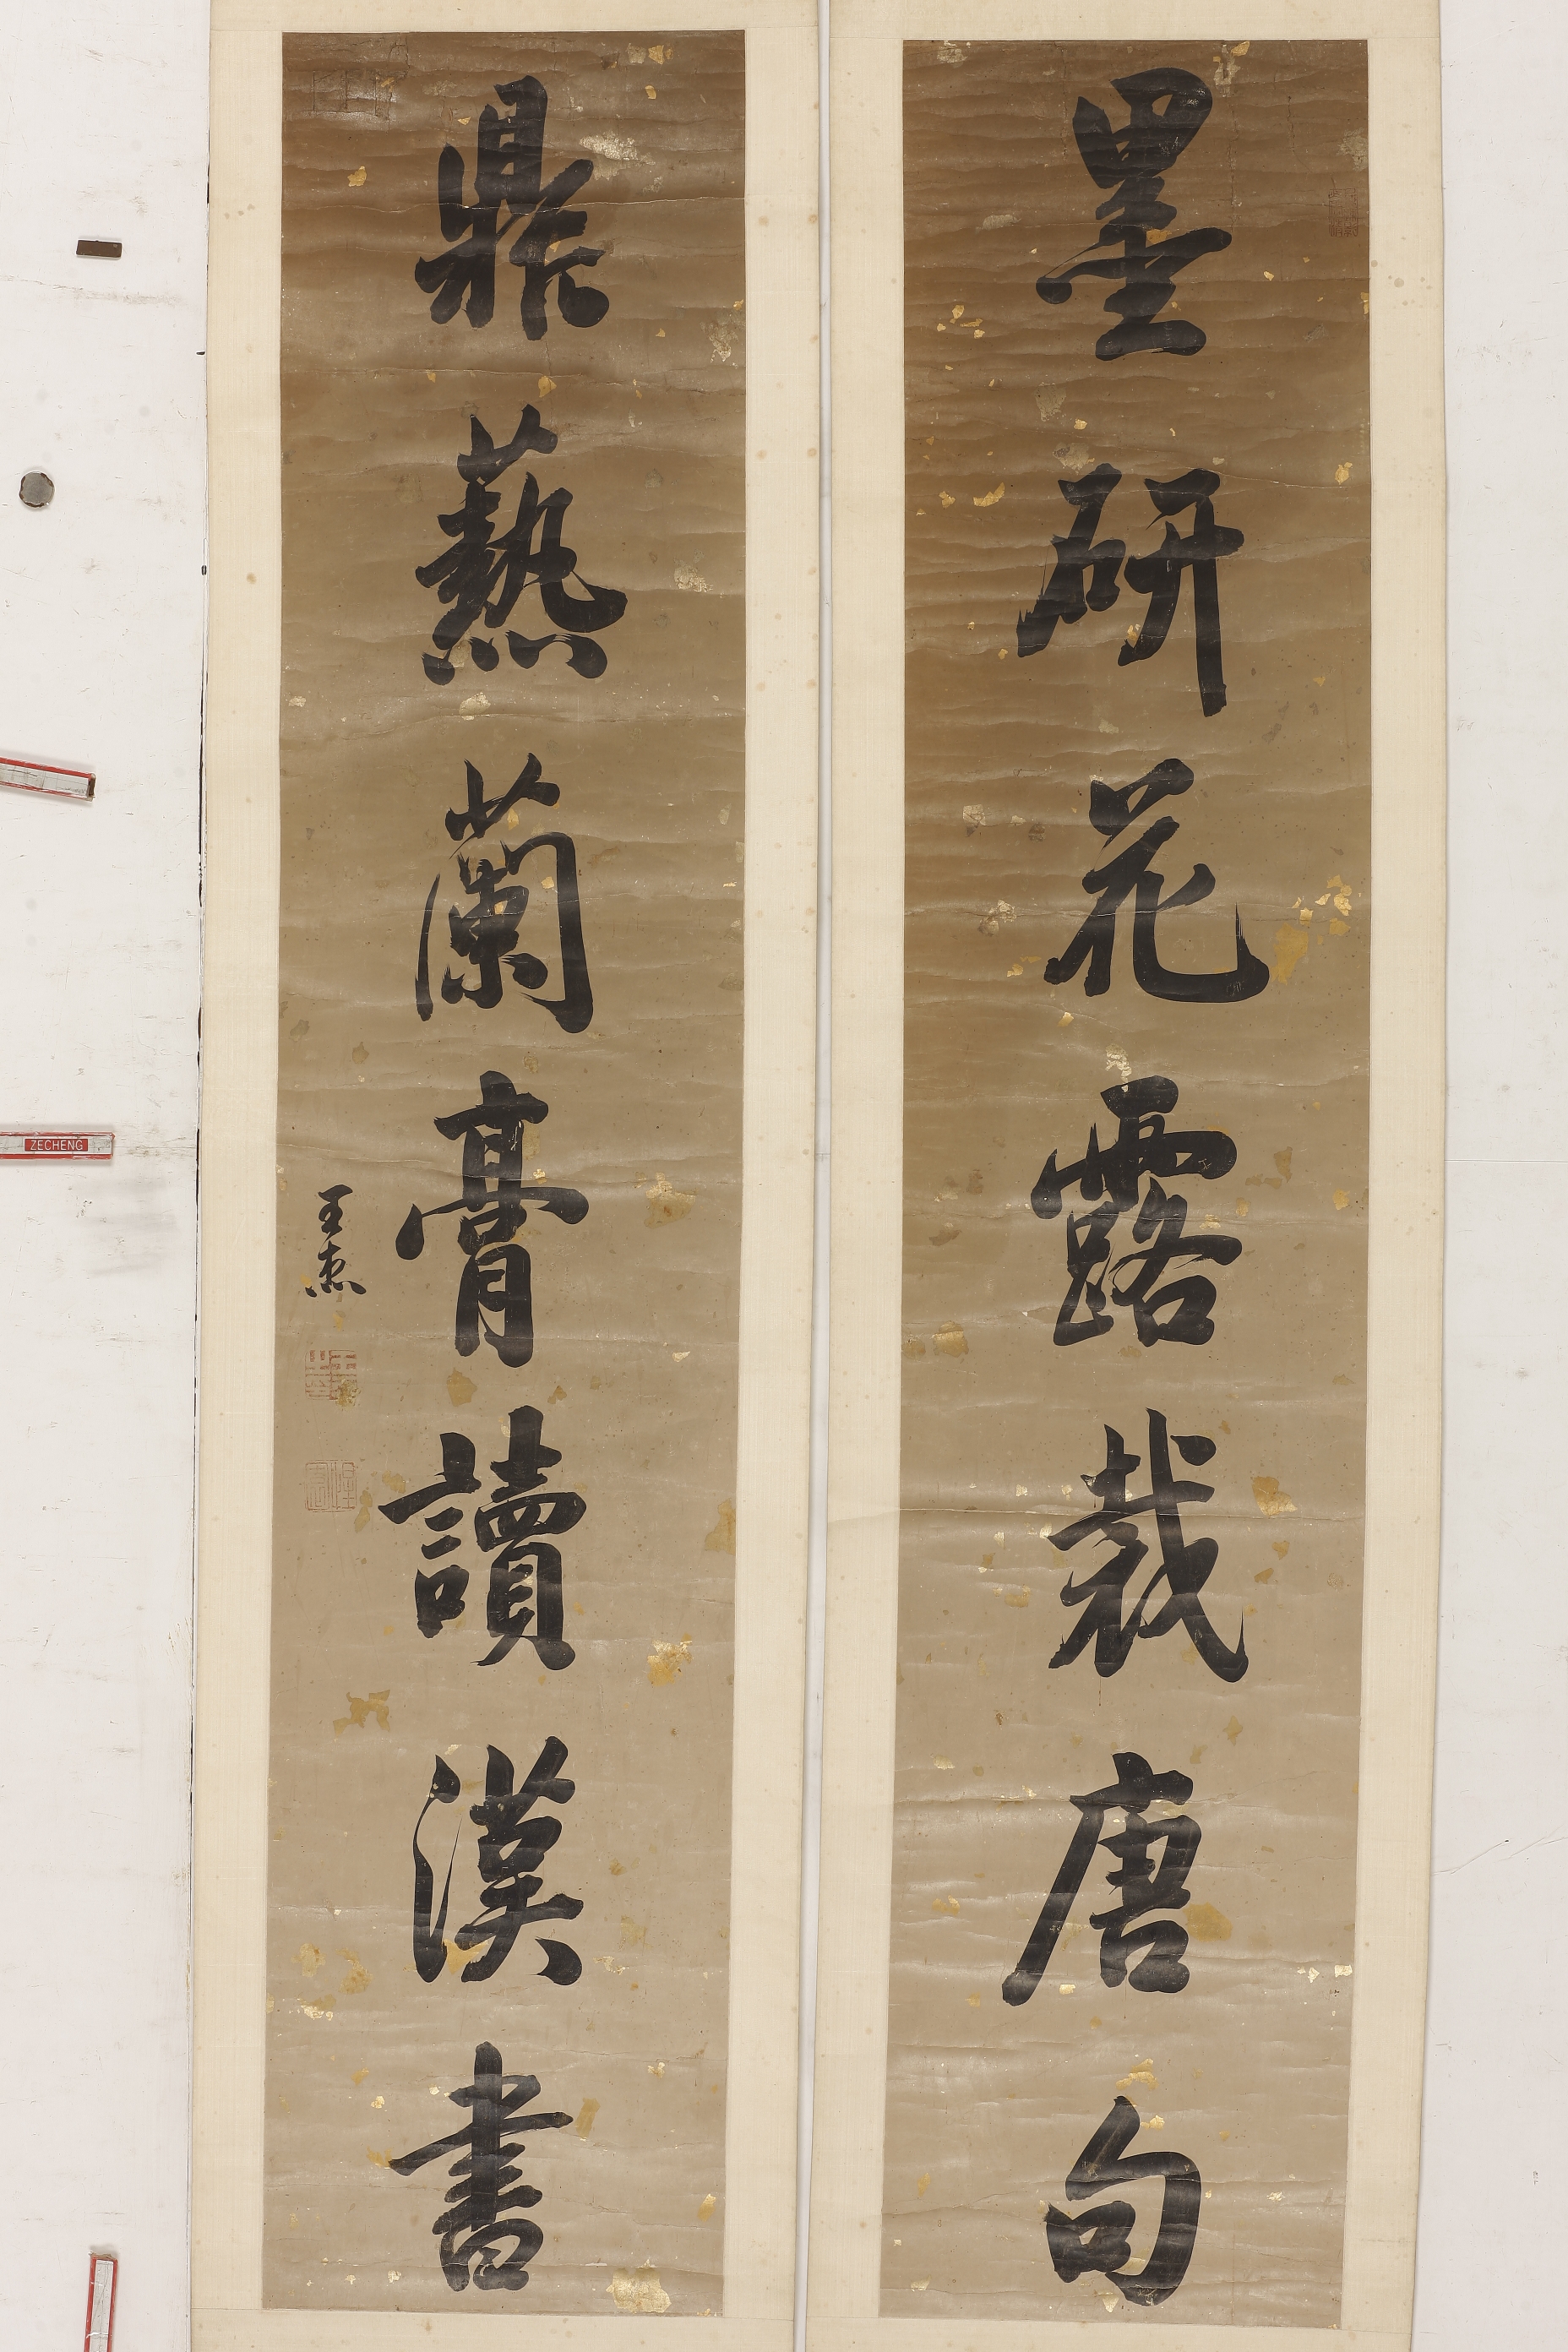 墨研花露裁唐句
鼎爇蘭膏讀漢書
王杰
ZECHENG